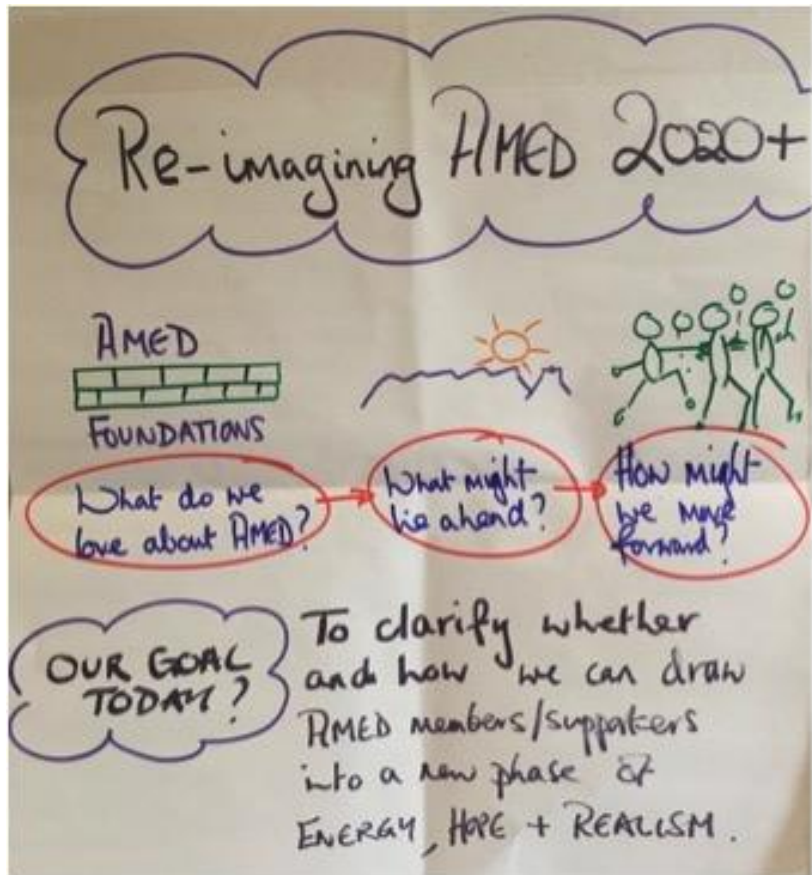 Re-imagining AMED 2020+
AMED
FOUNDATIONS
What do we
love about AMED?
What might
lie ahead?
How might
we move
forward?
OUR GOAL
TODAY?
To clarify whether
and how we can draw
AMED members/supporters
into a new phase of
ENERGY, HOPE + REALISM.